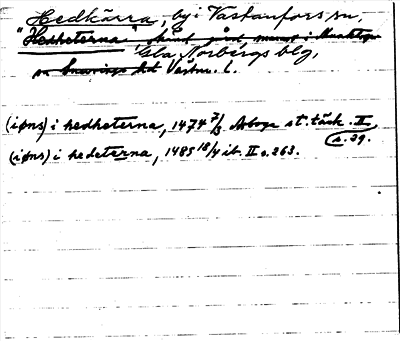 Hedkärra, by i Västanfors sn,
"Hedheterna", skänd gård
Gla Norbergs blg,
hd Västm. l.
(iøns) i hedheterna, 1474 7/3 Arboga st. täck. II,
s. 29.
(iøns) i hedeterna, 1485 18/4 ib. II s. 263.